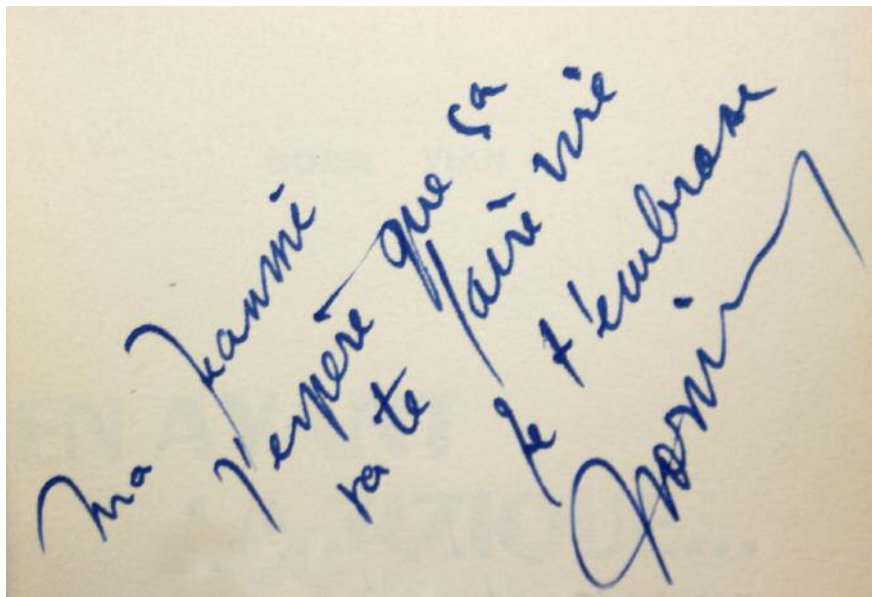 ma Jeanine
j'espère que ça
va te faire rire
je t'embrasse